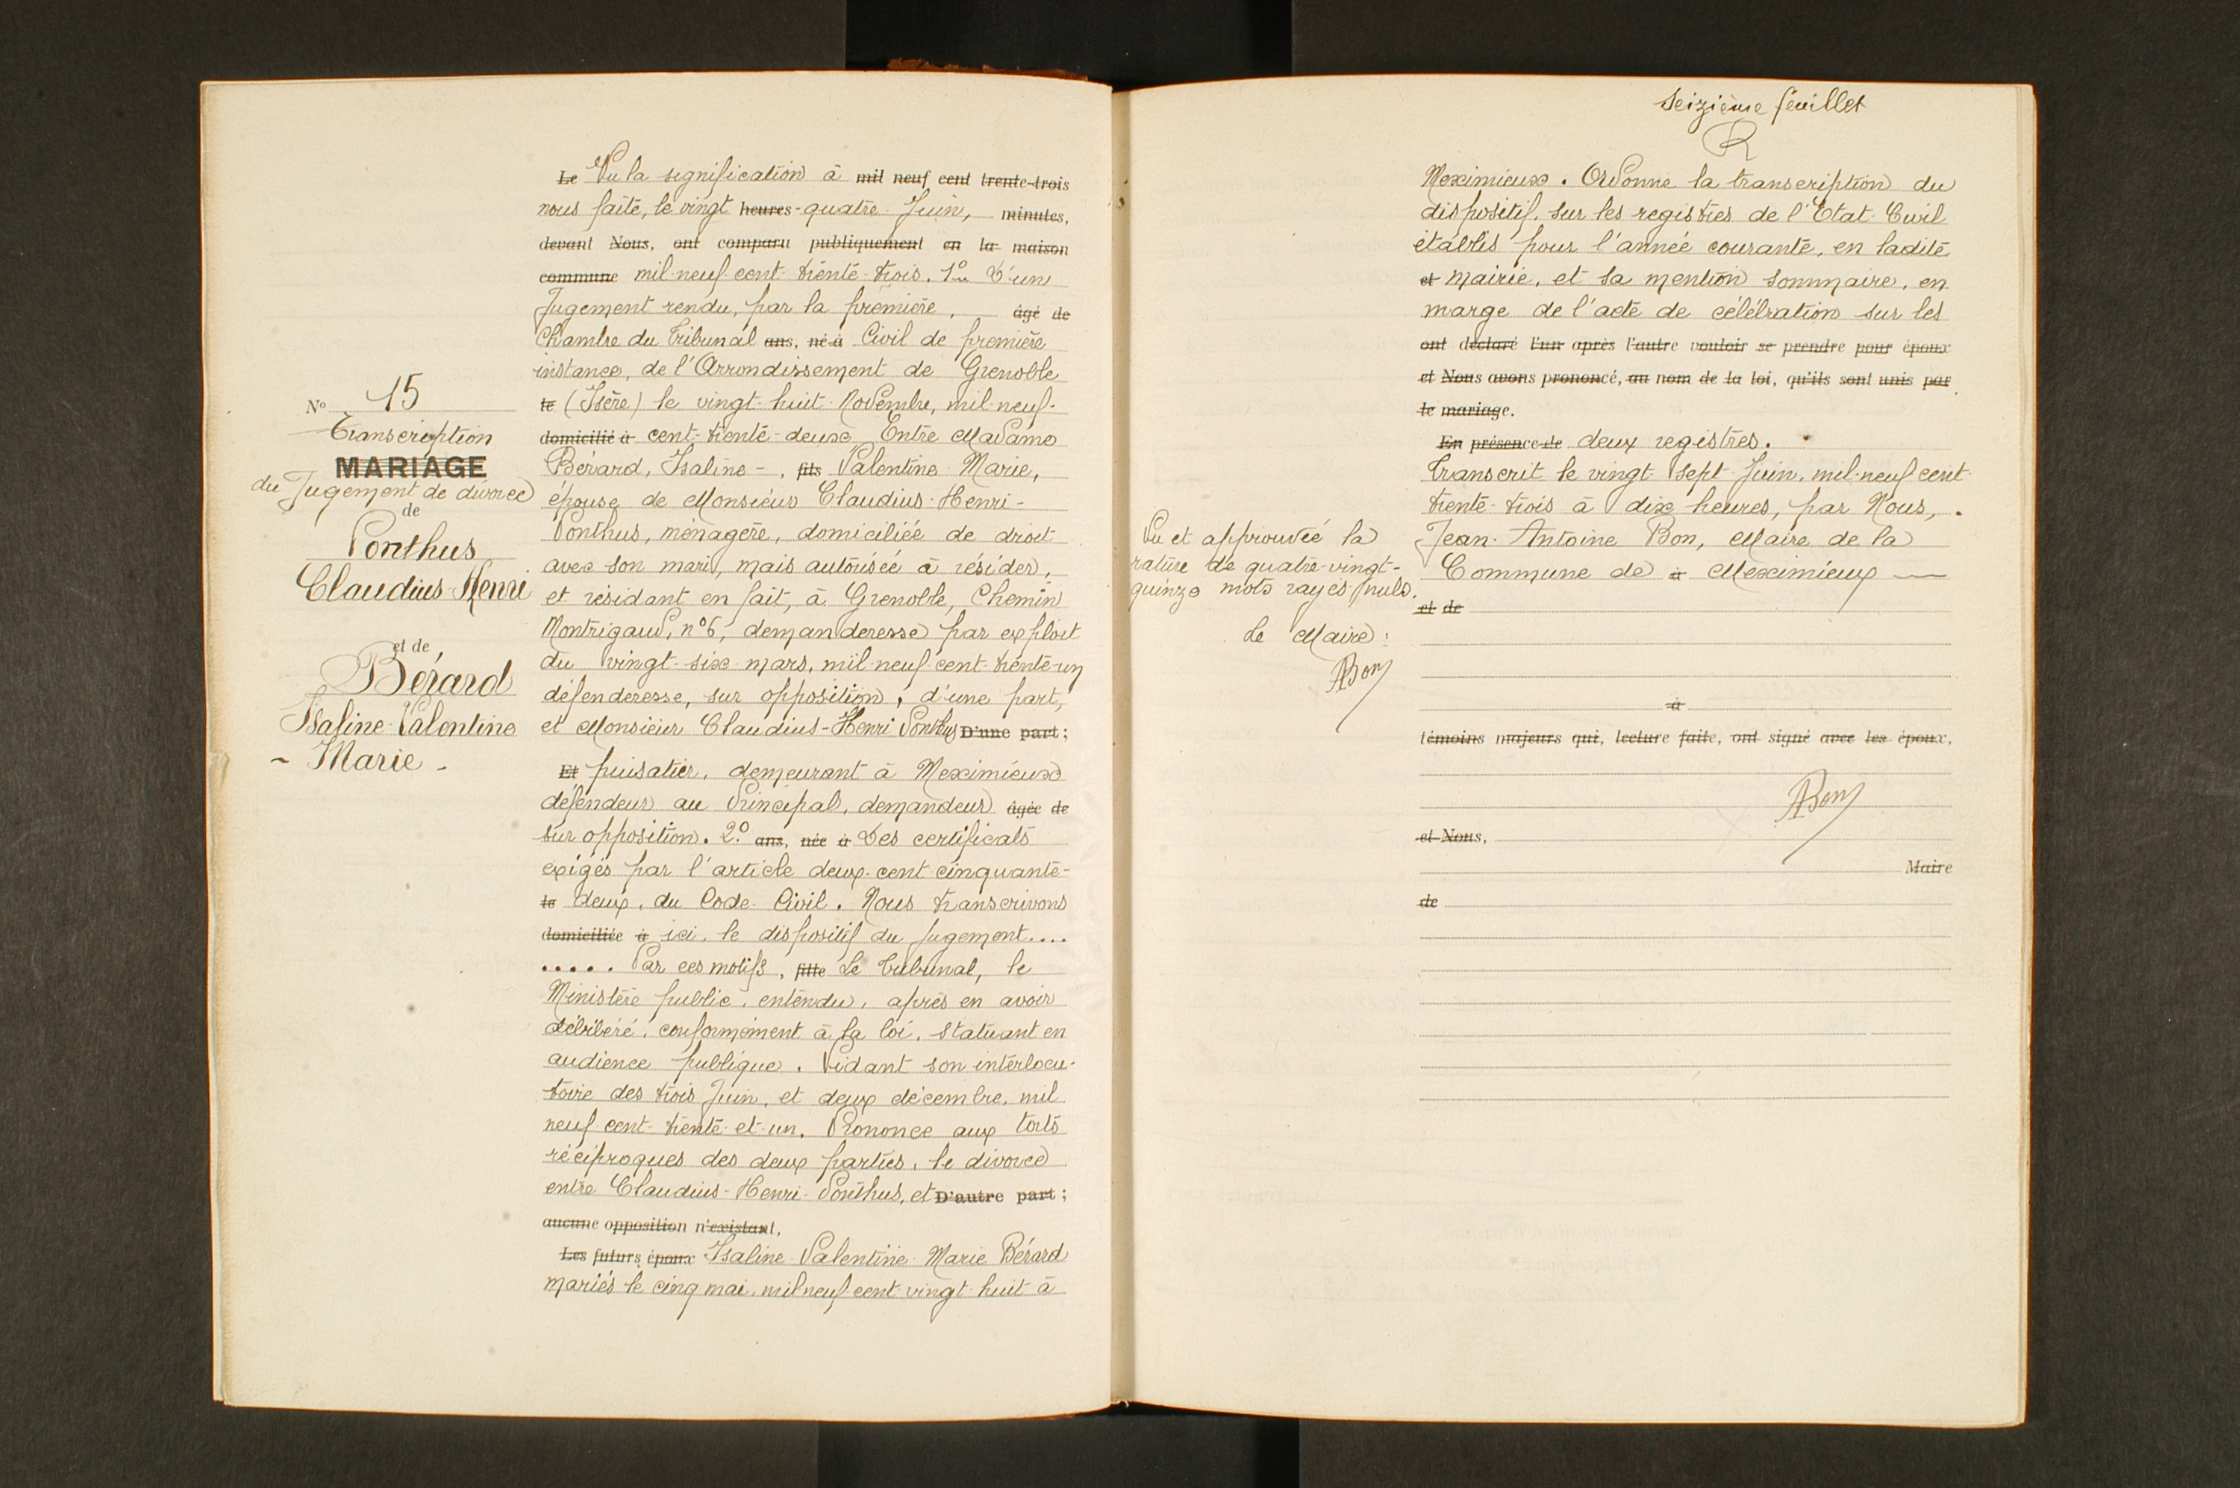 N° 15
Transcription
MARIAGE
du Jugement de divorce
de
Ponthus
Claudius-Henri
et de
Bérard
Isaline-Valentine
- Marie -
Le Vu la signification à mil neuf cent trente-trois
nous faite, le vingt heures-quatre Juin, minutes,
devant Nous, ont comparu publiquement en la maison
commune mil-neuf-cent-trente-trois. 1° D'un
Jugement rendu, par la première, âgé de
Chambre du Tribunal ans, né à Civil de première
instance, de l'Arrondissement de Grenoble
le (Isère) le vingt-huit-Novembre, mil-neuf-
domicilié à cent-trente-deux Entre Madame
Bérard, Isaline -, fils Valentine-Marie,
épouse de Monsieur Claudius-Henri-
Ponthus, ménagère, domiciliée de droit
avec son mari, mais autorisée à résider,
et résidant en fait, à Grenoble, Chemin
Montrigaud, n°6, demanderesse par exploit
du vingt-six-mars, mil-neuf-cent-trente-un
défenderesse, sur opposition, d'une part,
et Monsieur Claudius-Henri Ponthus D'une part;
Et puisatier, demeurant à Meximieux
défendeur au Principal, demandeur âgée de
sur opposition. 2° ans, née à Des certificats
exigés par l'article deux-cent-cinquante-
le deux, du Code-Civil. Nous transcrivons
domiciliée à ici, le dispositif du Jugement....
..... Par ces motifs, fille Le Tribunal, le
Ministère public, entendu, après en avoir
délibéré, conformément à la loi, statuant en
audience publique. Vidant son interlocu-
toire des trois Juin, et deux décembre, mil
neuf-cent-trente-et-un. Prononce aux torts
réciproques des deux parties, le divorce
entre Claudius-Henri-Ponthus, et D'autre part;
aucune opposition n'existant.
Les futurs époux Isaline-Valentine-Marie Bérard
mariés le cinq mai, mil neuf cent vingt-huit à
seizième feuillet
R
Meximieux. Ordonne la transcription du
dispositif, sur les registres de l'Etat-Civil
établis pour l'année courante, en ladite
et mairie, et sa mention sommaire, en
marge de l'acte de célébration sur les
ont déclaré l'un après l'autre vouloir se prendre pour époux
et Nous avons prononcé, au nom de la loi, qu'ils sont unis par
le mariage.
En présence de deux registres.
Transcrit le vingt-sept-Juin, mil-neuf cent-
trente-trois à dix heures, par Nous,
Jean-Antoine Bon, Maire de la
Commune de à Meximieux
et de
à
témoins majeurs qui, lecture faite, ont signé avec les époux,
ABon
et Nous,
Maire
de
Vu et approuvée la
rature de quatre-vingt-
quinze mots rayés nuls.
Le Maire:
ABon